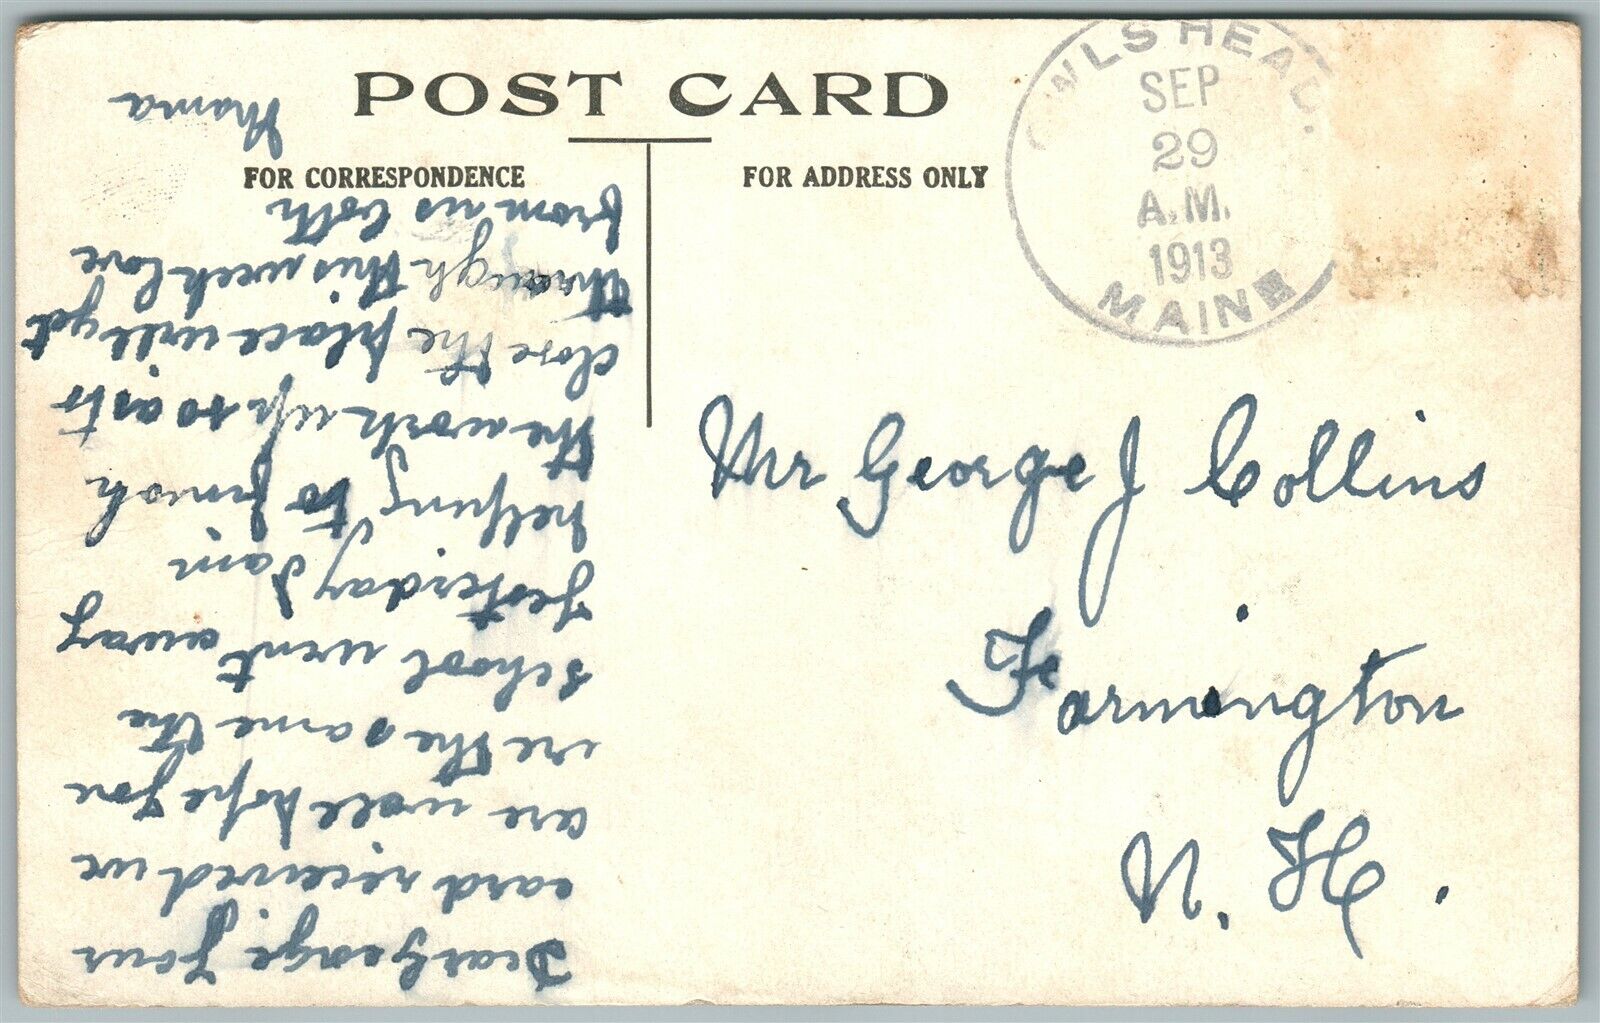 POST CARD
FOR CORRESPONDENCE
FOR ADDRESS ONLY
OWLS HEAD.
SEP
29
A.M.
1913
MAINE
Mr George J Collins
Farmington
N. H.
Dear George Your
card received we
are well hope you
are the same the
school went away
yesterday I am
helping to finish
the work up so as to
close the place will get
through this week love
from us both
Mama